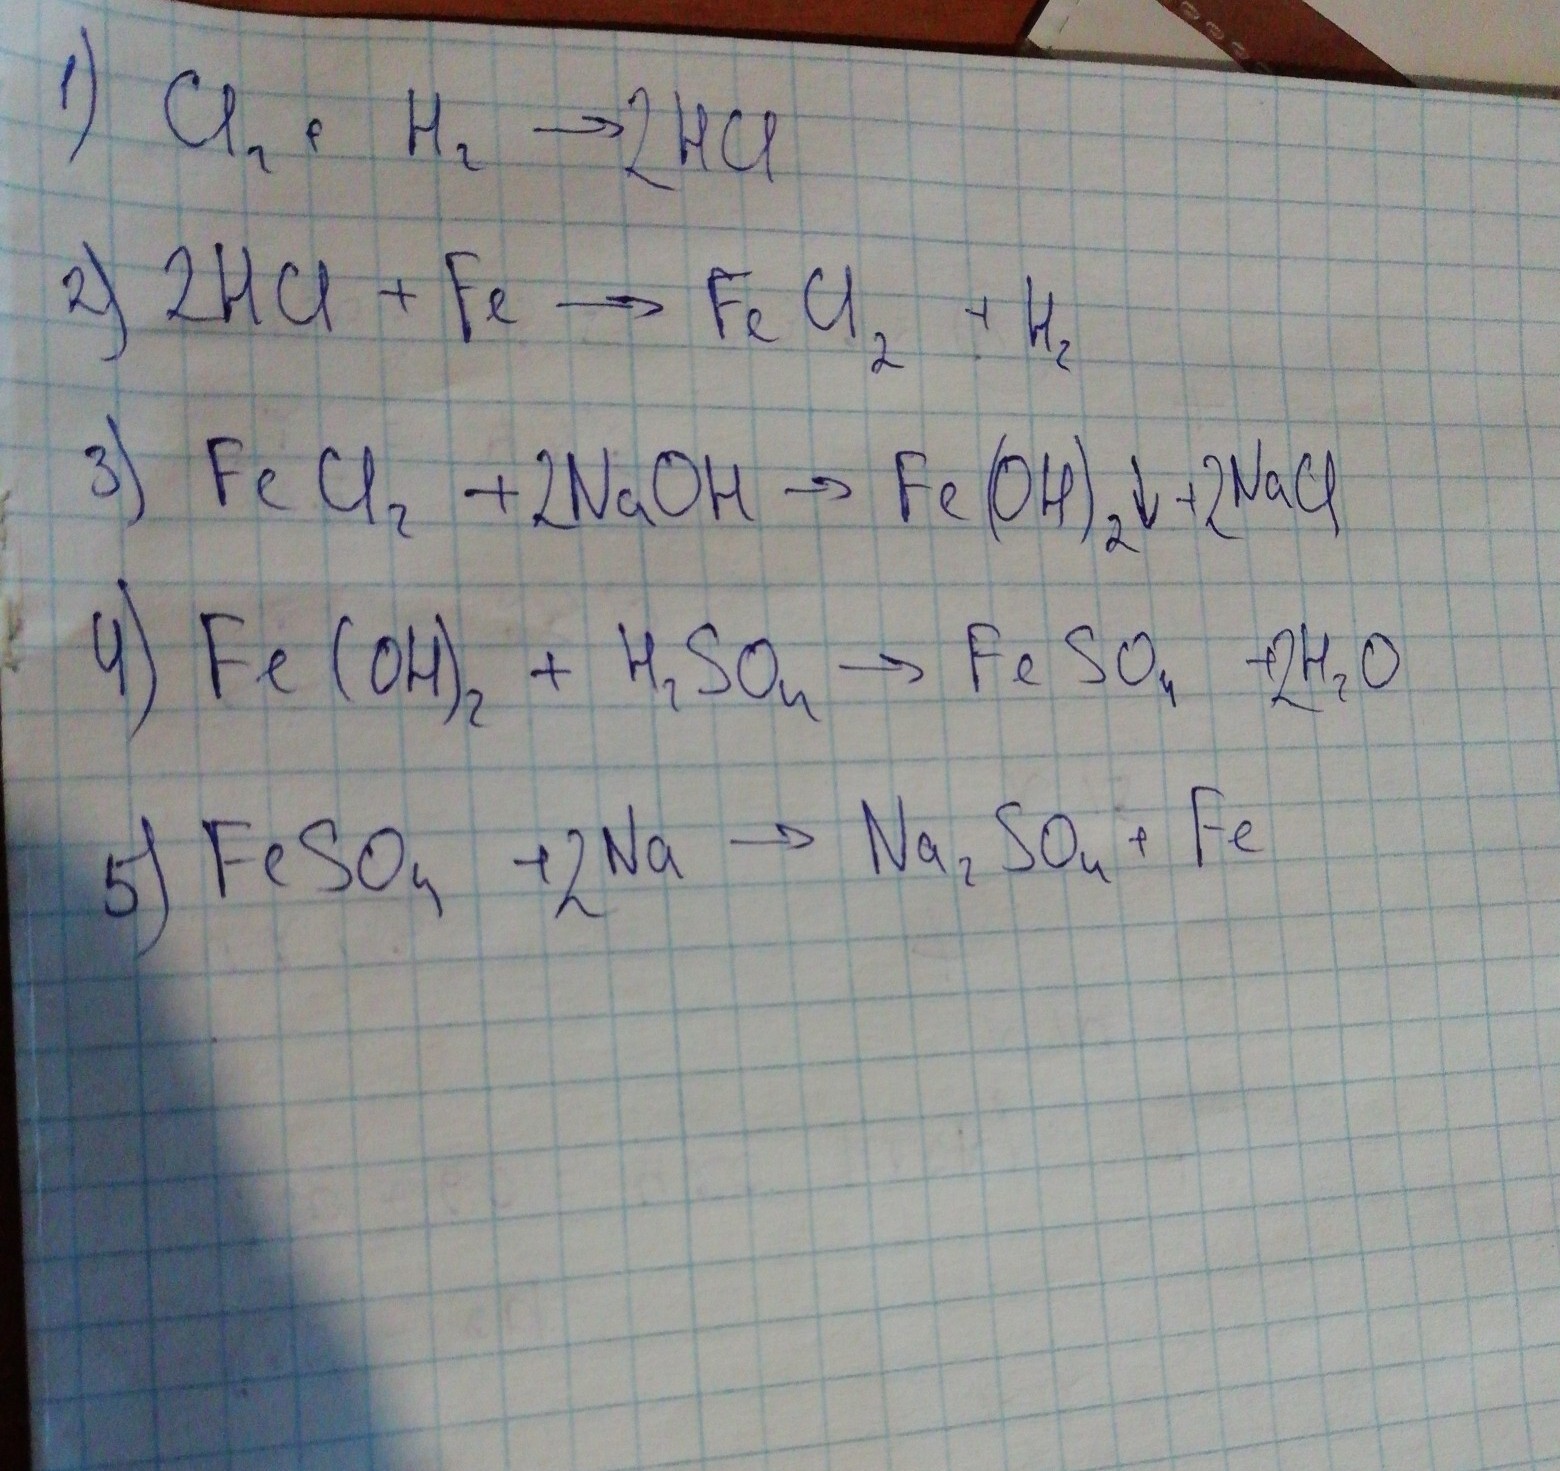 1) Cl₂ + H₂ → 2HCl
2) 2HCl + Fe → FeCl₂ + H₂
3) FeCl₂ + 2NaOH → Fe(OH)₂↓ + 2NaCl
4) Fe(OH)₂ + H₂SO₄ → FeSO₄ + 2H₂O
5) FeSO₄ + 2Na → Na₂SO₄ + Fe